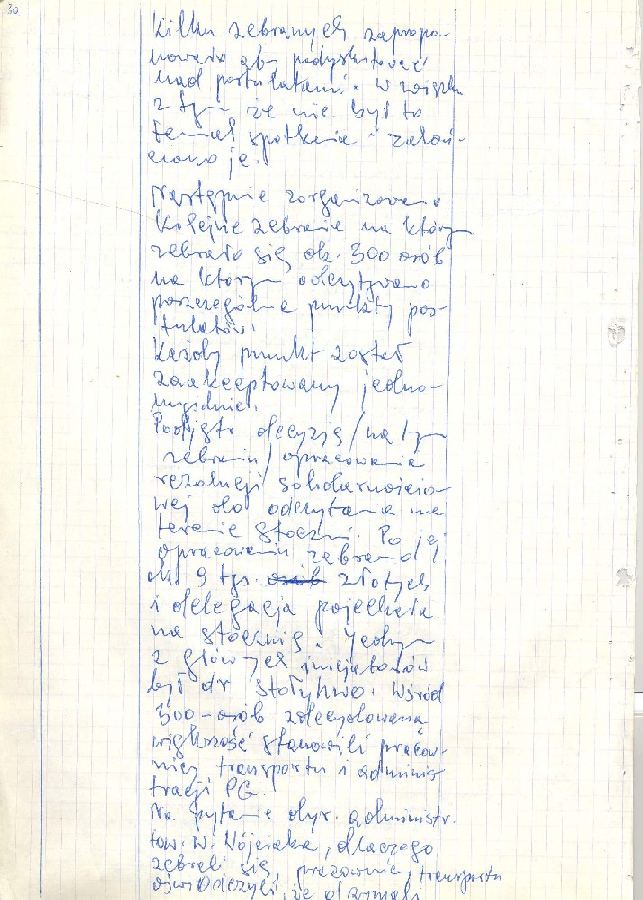 30
Kilku zebranych zapropo-
nowało aby podyskutować
nad postulatami. W związku
z tym że nie był to
temat spotkania - zakoń-
czono je.
Następnie zorganizowano
kolejne zebranie na którym
zebrało się ok. 300 osób
na którym odczytywano
poszczególne punkty pos-
tulatów.
Każdy punkt został
zaakceptowany jedno-
myślnie.
Podjęto decyzję /na tym
zebraniu/ opracowania
rezolucji solidarnościo-
wej do odczytania na
terenie stoczni. Po jej
opracowaniu zebrano
ok. 9 tys. osób złotych
i delegacja pojechała
na stocznię. Jednym
z głównych inicjatorów
był dr Stołyhwo. Wśród
300-osób zdecydowaną
większość stanowili pracow-
nicy transportu i adminis-
tracji PG.
Na pytanie dyr. administr.
tow. W. Wójciaka, dlaczego
zebrali się, pracownicy transportu
oświadczyli, że otrzymali